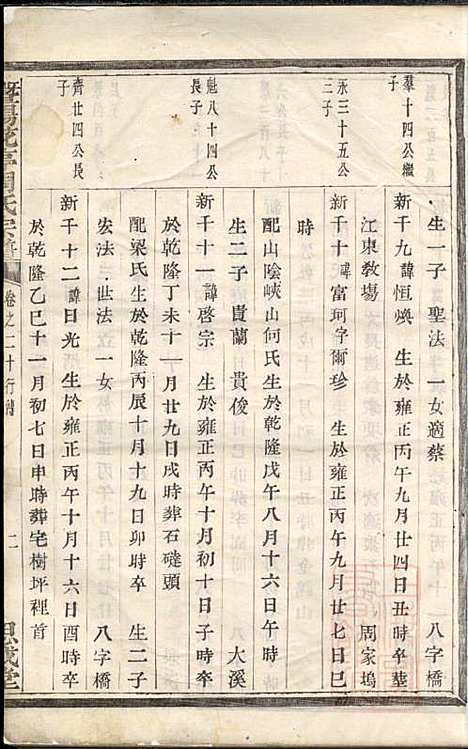 生一子聖法一女適蔡　八字橋
羣十四公繼子
新千九諱恒煥　生於雍正丙午九月廿四日丑時卒葬
江東教塲　周家塢
永三十五公三子
新千十諱富珂字爾珍　生於雍正丙午九月廿七日巳
時
配山陰峽山何氏生於乾隆戊午八月十六日午時
生二子貴蘭　貴俊　大溪
魁八十四公長子
新千十一諱啓宗　生於雍正丙午十月初十日子時卒
於乾隆丁未十一月廿九日戌時葬石碰頭
配梁氏生於乾隆丙辰十月十九日卯時卒　生二子
宏法　世法　一女　八字橋
齊廿四公長子
新千十二諱日光　生於雍正丙午十月十六日酉時卒
於乾隆乙巳十一月初七日申時葬宅樹坪裡首
周氏宗譜　卷之二十行割　二　思誠堂